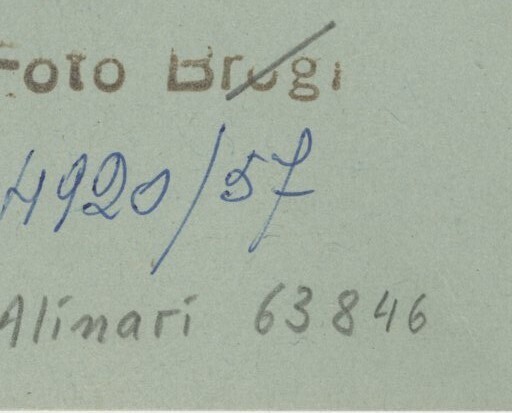 Foto Brogi
4920/57
Alinari 63846